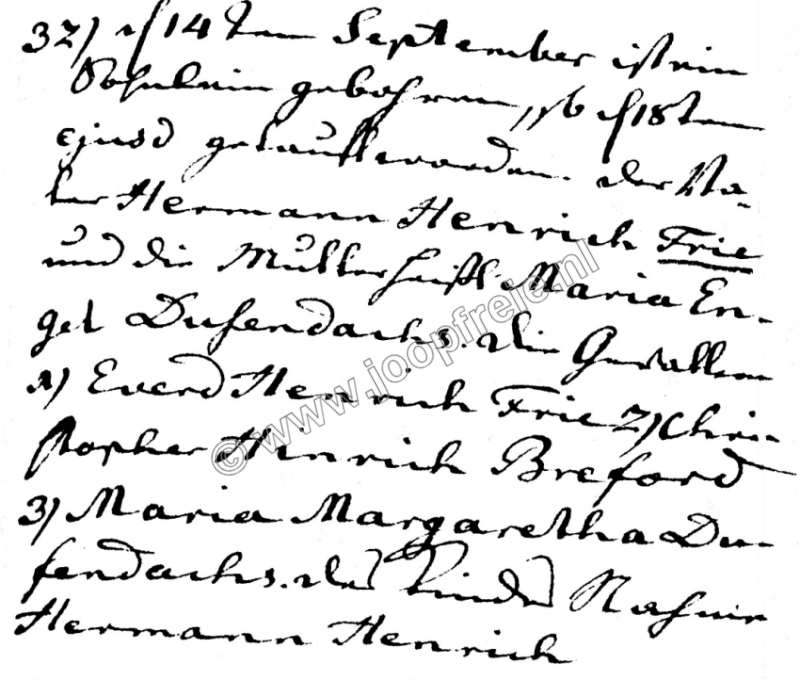 32) d 14ten September ist ein
Söhnlein gebohren, d 18ten
ejusd getaufft worden. der Va-
ter Hermann Henrich Frie
und die Mutter heißt Maria En-
gel Dufendachs. die Gevattern
1) Everd Henrich Frie 2) Chri-
stopher Hinrich Breford
3) Maria Margaretha Du-
fendachs. des Kindes Nahme
Hermann Henrich
© www.joopfreje.nl